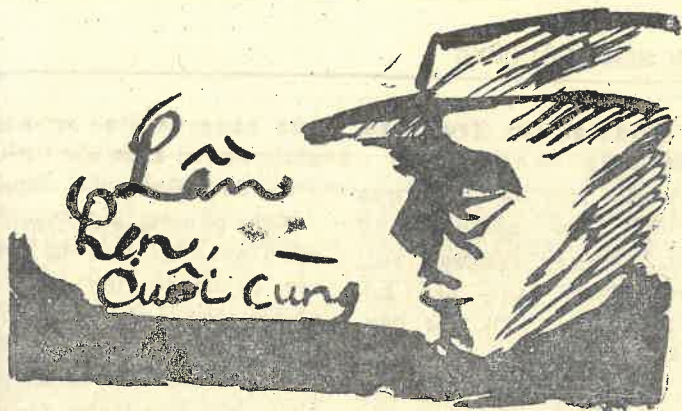 Lần
hẹn
cuối cùng